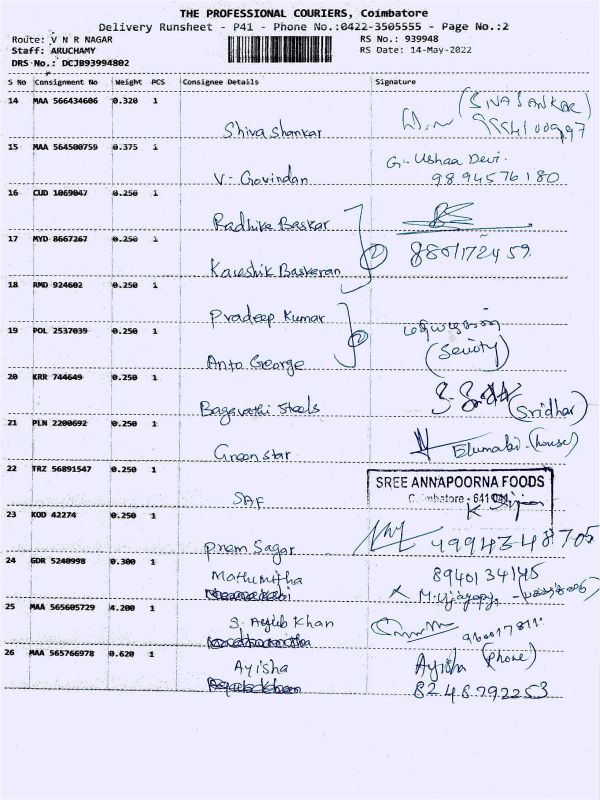 THE PROFESSIONAL COURIERS, Coimbatore
Delivery Runsheet - P41 - Phone No.:0422-3505555 - Page No.:2
Route: V N R NAGAR RS No.: 939948
Staff: ARUCHAMY RS Date: 14-May-2022
DRS No.: DCJB93994802
S No Consignment No Weight PCS Consignee Details Signature
14 MAA 566434606 0.320 1
(SIVASANKAR)
Shiva Shankar
15 MAA 564500759 0.375 1
G. Ushaa Devi.
V- Govindan 9894576180
16 CUD 1069047 0.250 1
Radhika Baskar
17 MYD 8667267 0.250 1
Kaushik Baskeran
18 RMD 924602 0.250 1
Pradeep Kumar
19 POL 2537039 0.250 1
Anto George
20 KRR 744649 0.250 1
Bagavathi Steels (Sridhar)
21 PLN 2200692 0.250 1
Green star Elumalai (house)
22 TRZ 56891547 0.250 1
SREE ANNAPOORNA FOODS
Coimbatore - 641
SAF
23 KOD 42274 0.250 1
Prem Sagar
24 GDR 5240998 0.300 1
Mathumitha 8940134145
25 MAA 565605729 4.200 1
S. Ayub Khan
26 MAA 565766978 0.620 1
Ayisha Ayisha (Phone)
8248792253